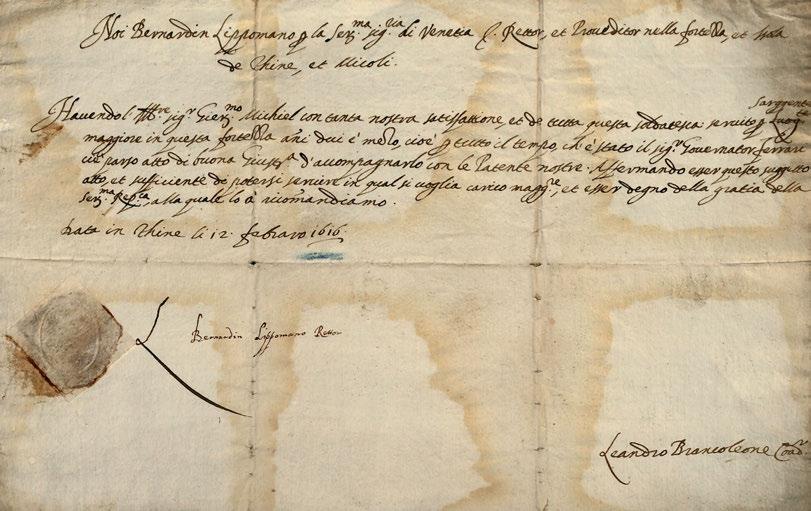 Noi Bernardin Lippomano p la Ser.ma sig.ria di Venetia &c. Rettor, et Proueditor nella fortezza, et Isola
de Thine, et Micoli.
Sarggente
Hauendo l' Ill.re sig.r Gier.mo Michiel con tanta nostra satisfattione, et de tutta questa soldatesca seruito p
maggiore in questa fortezza ani dui è mezo, cioè p tutto il tempo, ch'è stato il sig.r Gouernator ferrari
ci è parso atto di buona Giust.a d'accompagnarlo con le Patente nostre. Affermando esser questo suggetto
atto, et sufficiente di potersi seruire in qual si uoglia carico magg.re, et esser degno della gratia della
Ser.ma Rep.ca, alla quale lo ricomandiamo.
Data in Thine li 12. febraro 1616.
Bernardin Lippomano Rettor
Leandro Brancoleone